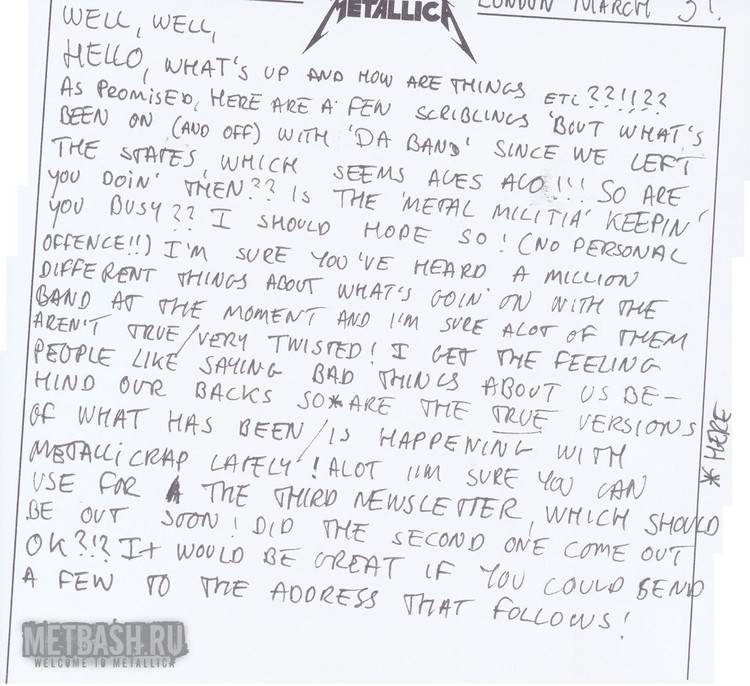 METALLICA
LONDON MARCH 31.
WELL, WELL,
HELLO, WHAT'S UP AND HOW ARE THINGS ETC??!!??
AS PROMISED, HERE ARE A FEW SCRIBLINGS 'BOUT WHAT'S
BEEN ON (AND OFF) WITH 'DA BAND' SINCE WE LEFT
THE STATES, WHICH SEEMS AGES AGO!!! SO ARE
YOU DOIN' THEN?? IS THE 'METAL MILITIA' KEEPIN'
YOU BUSY?? I SHOULD HOPE SO! (NO PERSONAL
OFFENCE!!) I'M SURE YOU'VE HEARD A MILLION
DIFFERENT THINGS ABOUT WHAT'S GOIN' ON WITH THE
BAND AT THE MOMENT AND I'M SURE ALOT OF THEM
AREN'T TRUE/VERY TWISTED! I GET THE FEELING
PEOPLE LIKE SAYING BAD THINGS ABOUT US BE-
HIND OUR BACKS SO*ARE THE TRUE VERSIONS
OF WHAT HAS BEEN/IS HAPPENING WITH
METALLICRAP LATELY! ALOT I'M SURE YOU CAN
USE FOR THE THIRD NEWSLETTER, WHICH SHOULD
BE OUT SOON! DID THE SECOND ONE COME OUT
OK?!? It WOULD BE GREAT IF YOU COULD SEND
A FEW TO THE ADDRESS THAT FOLLOWS!
* HERE
METBASH.RU
WELCOME TO METALLICA